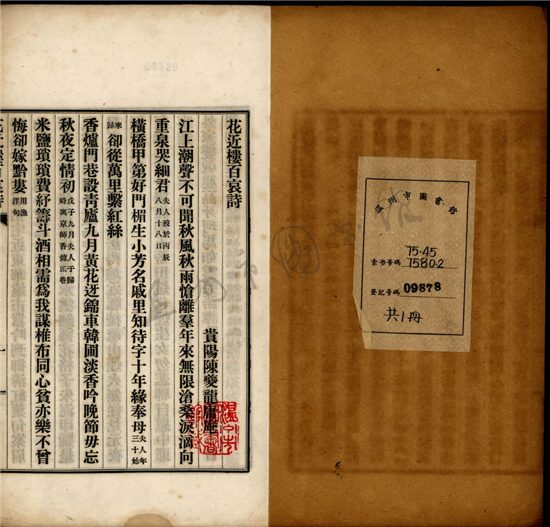 花近樓百哀詩
貴陽陳夔龍庸庵
江上潮聲不可聞秋風秋雨愴離羣年來無限滄桑淚滴向
重泉哭細君夫人歿於丙辰八月十八日
橫橋甲第好門楣生小芳名戚里知待字十年緣奉母夫人年三十始
來歸卻從萬里繫紅絲
香爐門巷設青廬九月黃花迓錦車韓圃淡香吟晚節毋忘
秋夜定情初戊子九月夫人于歸時寓京師香爐頭巷
米鹽瑣瑣費紓籌斗酒相需爲我謀椎布同心貧亦樂不曾
悔卻嫁黔婁用漁洋句
花近樓百哀詩
一
溫州市圖書館
索書號碼 75.45
7580.2
登記號碼 09878
共1冊